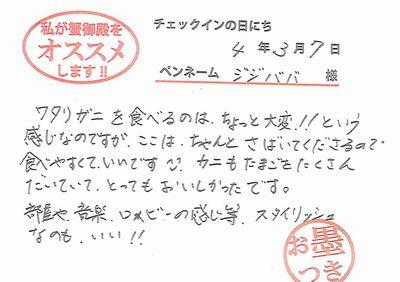 私が蟹御殿を
オススメ
します!!
チェックインの日にち
4年3月7日
ペンネーム ジジババ 様
ワタリガニを食べるのは、ちょっと大変!!という
感じなのですが、ここは、ちゃんとさばいてくださるので
食べやすくて、いいです。カニもたまごをたくさん
だいていて、とってもおいしかったです。
部屋や、音楽、ロビーの感じ等、スタイリッシュ
なのも、いい!!
お墨
つき